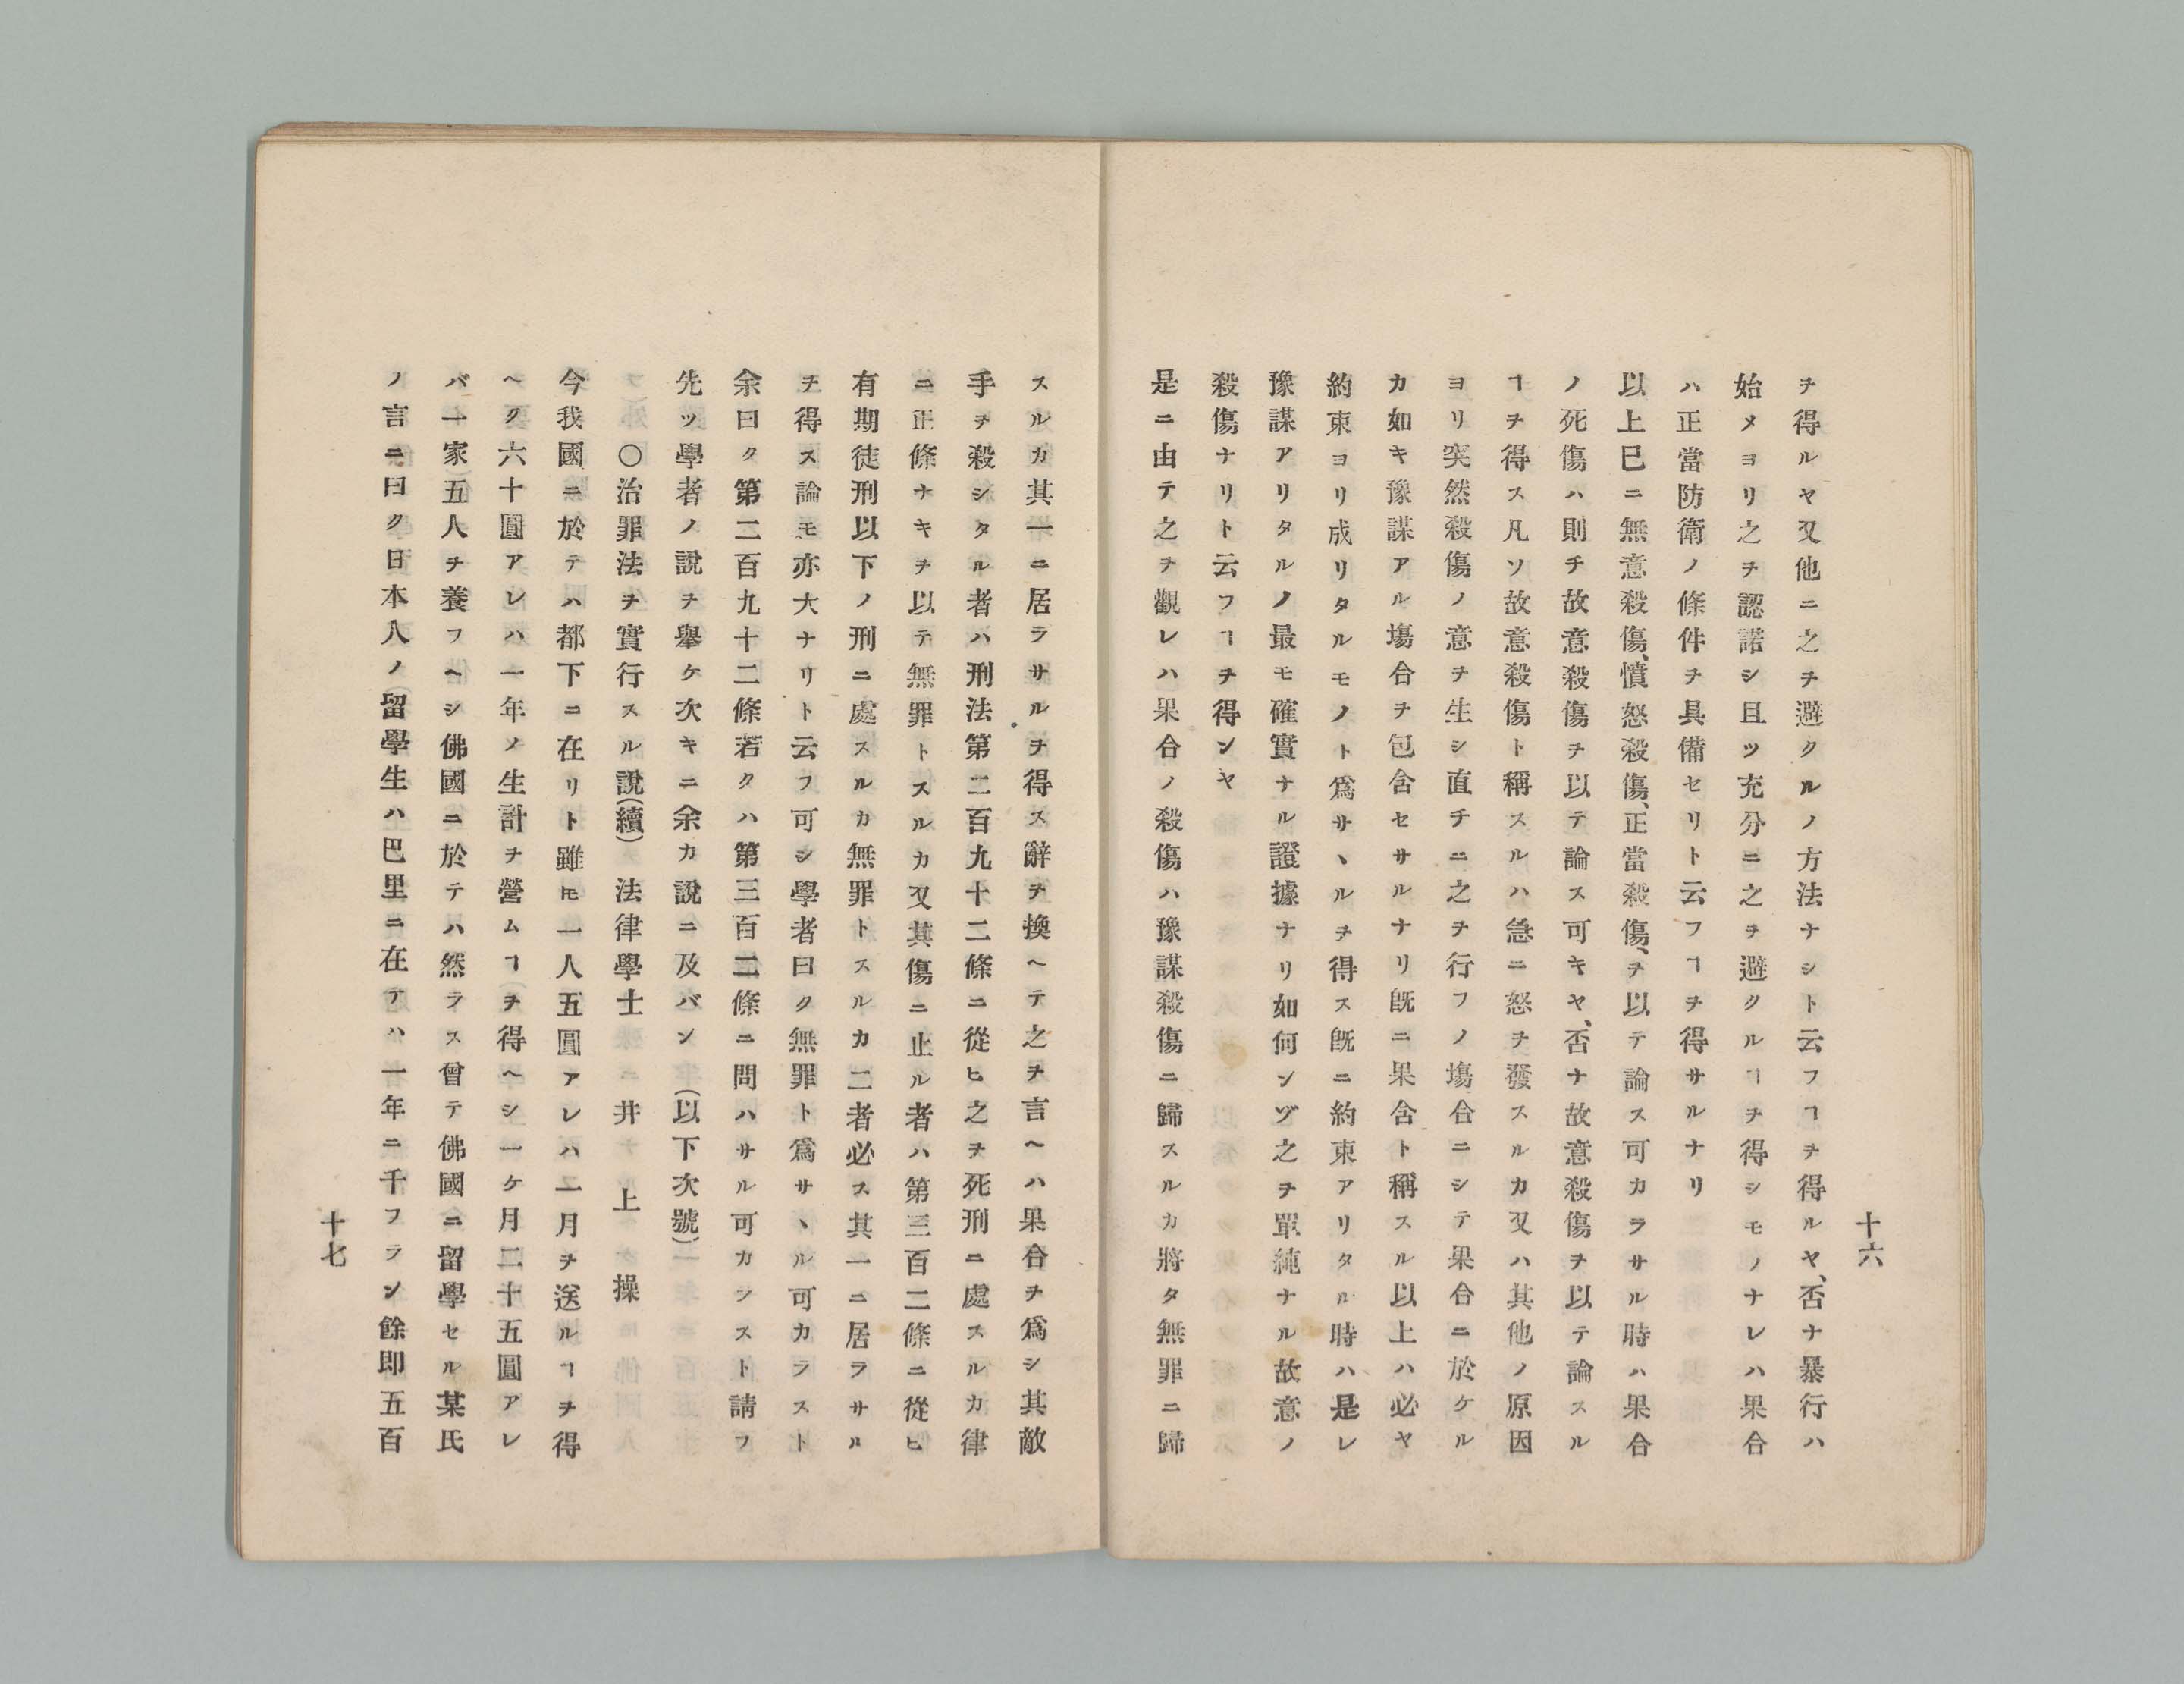 十六
ヲ得ルヤ又他ニ之ヲ避クルノ方法ナシト云フヿヲ得ルヤ、否ナ暴行ハ
始メヨリ之ヲ認諾シ且ツ充分ニ之ヲ避クルヿヲ得シモノナレハ果合
ハ正當防衛ノ條件ヲ具備セリト云フヿヲ得サルナリ
以上巳ニ無意殺傷、憤怒殺傷、正當殺傷、ヲ以テ論ス可カラサル時ハ果合
ノ死傷ハ則チ故意殺傷ヲ以テ論ス可キヤ、否ナ故意殺傷ヲ以テ論スル
ヿヲ得ス凡ソ故意殺傷ト稱スルハ急ニ怒ヲ發スルカ又ハ其他ノ原因
ヨリ突然殺傷ノ意ヲ生シ直チニ之ヲ行フノ塲合ニシテ果合ニ於ケル
カ如キ豫謀アル塲合ヲ包含セサルナリ既ニ果合ト稱スル以上ハ必ヤ
約束ヨリ成リタルモノト爲サヽルヲ得ス既ニ約束アリタル時ハ是レ
豫謀アリタルノ最モ確實ナル證據ナリ如何ンゾ之ヲ單純ナル故意ノ
殺傷ナリト云フヿヲ得ンヤ
是ニ由テ之ヲ觀レハ果合ノ殺傷ハ豫謀殺傷ニ歸スルカ將タ無罪ニ歸
スルカ其一ニ居ラサルヲ得ス辭ヲ換ヘテ之ヲ言ヘハ果合ヲ爲シ其敵
手ヲ殺シタル者ハ刑法第二百九十二條ニ從ヒ之ヲ死刑ニ處スルカ律
ニ正條ナキヲ以テ無罪トスルカ又其傷ニ止ル者ハ第三百二條ニ從ヒ
有期徒刑以下ノ刑ニ處スルカ無罪トスルカ二者必ス其一ニ居ラサル
ヲ得ス論モ亦大ナリト云フ可シ學者曰ク無罪ト爲サヽル可カラスト
余曰ク第二百九十二條若クハ第三百二條ニ問ハサル可カラスト請フ
先ッ學者ノ說ヲ舉ケ次キニ余カ說ニ及バン（以下次號）
〇治罪法ヲ實行スル說（續） 法律學士 井上操
今我國ニ於テハ都下ニ在リト雖モ一人五圓アレハ一月ヲ送ルヿヲ得
ヘク六十圓アレハ一年ノ生計ヲ營ムヿヲ得ヘシ一ケ月二十五圓アレ
バ一家五人ヲ養フヘシ佛國ニ於テハ然ラス曾テ佛國ニ留學セル某氏
ノ言ニ曰ク日本人ノ留學生ハ巴里ニ在テハ一年ニ千フラン餘即五百
十七